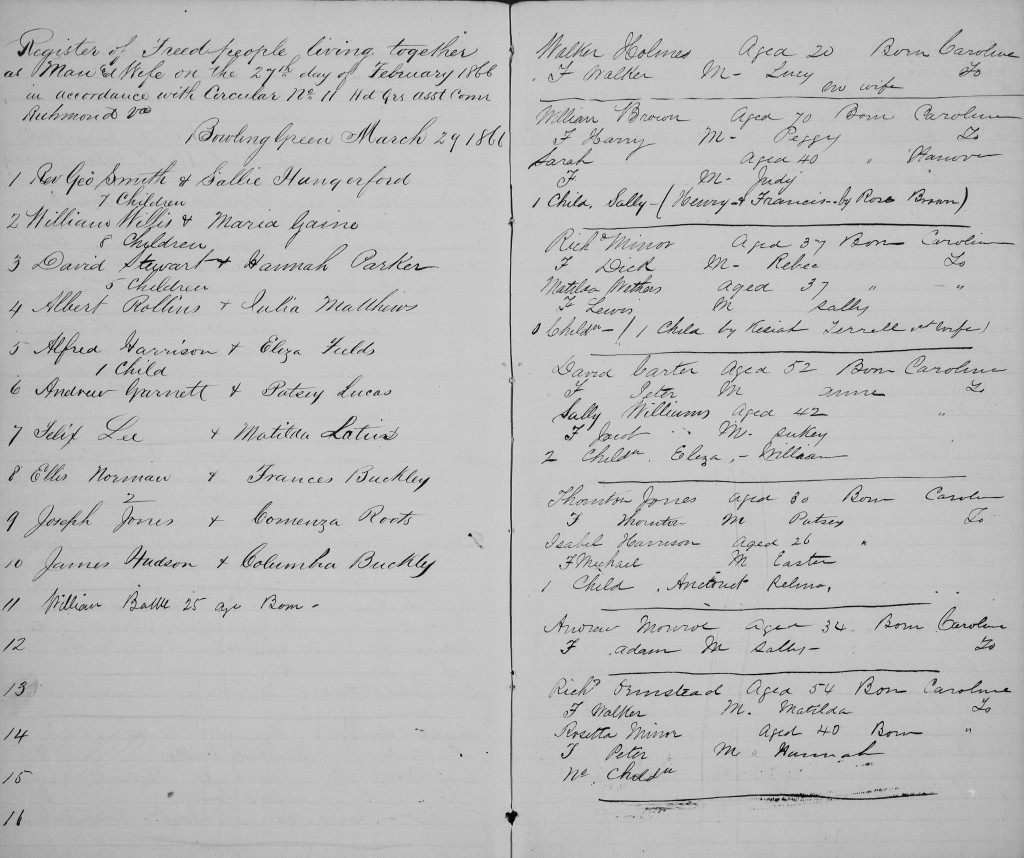 Register of Freed people living together
as Man & Wife on the 27th day of February 1866
in accordance with Circular No 11 Hd Qrs asst Comr
Richmond Va
Bowling Green March 29 1866
1 Rev Geo Smith & Sallie Hungerford
7 Children
2 William Willis & Maria Gaine
8 Children
3 David Stewart & Hannah Parker
5 Children
4 Albert Rollins & Julia Matthews
5 Alfred Harrison & Eliza Fields
1 Child
6 Andrew Garnett & Patsey Lucas
7 Felix Lee & Matilda
8 Ellis Norman & Frances Buckley
2
9 Joseph Jones & Comenza Roots
10 James Hudson & Columbia Buckley
11 William 25 age Born -
12
13
14
15
16
Walker Holmes Aged 20 Born Caroline
F Walker M- Lucy Co
no wife
William Brown Aged 70 Born Caroline
F Harry M- Peggy Co
Sarah Aged 40 " Hanover
F M- Judy
1 Child, Sally - (Henry & Francis - by Rose Brown)
Richd Minor Aged 37 Born Caroline
F Dick M- Rebec Co
Matilda Aged 37 " - "
F Lewis M Sally
0 Childn - (1 Child by Terrell wife)
David Carter Aged 52 Born Caroline
F Peter M Co
Sally Williams Aged 42 "
F Jacob M- Sukey
2 Childn. Eliza, - William
Thornton Jones Aged 30 Born Caroline
F Thornton M Patsey Co
Isabel Harrison Aged 26 "
F Michael M Easter
1 Child
Andrew Monroe Aged 34 Born Caroline
F adam M Sally - Co
Richd Ormstead Aged 54 Born Caroline
F Walker M. Matilda Co
Rosetta Minor Aged 40 Born "
F Peter M Hannah
No Childn